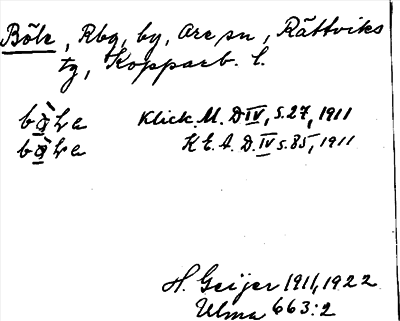 Böle, Rbg, by, Ore sn, Rättviks
tg, Kopparb. l.
Klick. M. D IV, s. 27, 1911
K E. A. D. IV s. 85, 1911
H. Geijer 1911, 1922
Ulma 663:2